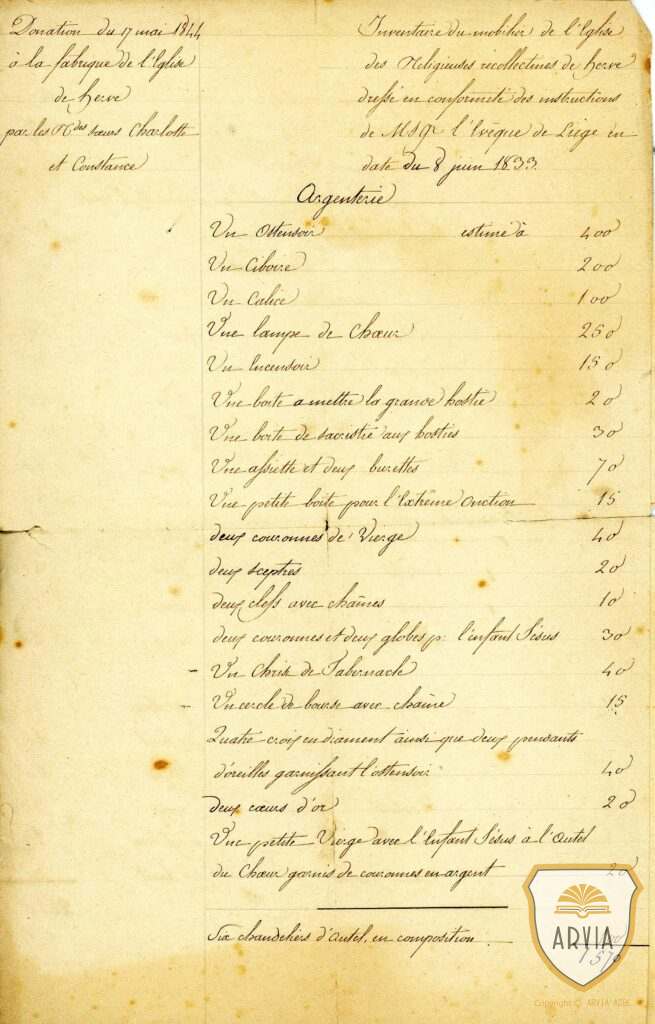 Donation du 17 mai 1844
à la fabrique de l'Eglise
de Herve
par les Rdes sœurs Charlotte
et Constance
Inventaire du mobilier de l'Eglise
des Religieuses récollectines de Herve
dressé en conformité des instructions
de MSgr l'Evêque de Liège en
date du 8 juin 1833.
Argenterie
Un Ostensoir estimé à 400
Un Ciboire 200
Un Calice 100
Une lampe de Chœur 250
Un Encensoir 150
Une boite a mettre la grande hostie 20
Une boite de sacristie aux hosties 30
Une assiette et deux burettes 70
Une petite boîte pour l'Extrême Onction 15
deux couronnes de Vierge 40
deux sceptres 20
deux clefs avec chaînes 10
deux couronnes et deux globes p: l'enfant Jésus 30
Un Christ de Tabernacle 40
Un cercle de bourse avec chaîne 15
Quatre croix en diament ainsi que deux pendants
d'oreilles garnissant l'ostensoir 40
deux cœurs d'or 20
Une petite Vierge avec l'Enfant Jésus à l'Autel
du Chœur garnis de couronnes en argent 20
Six chandeliers d'Autel, en composition
1570
ARVIA
Copyright © ARVIA ASBL